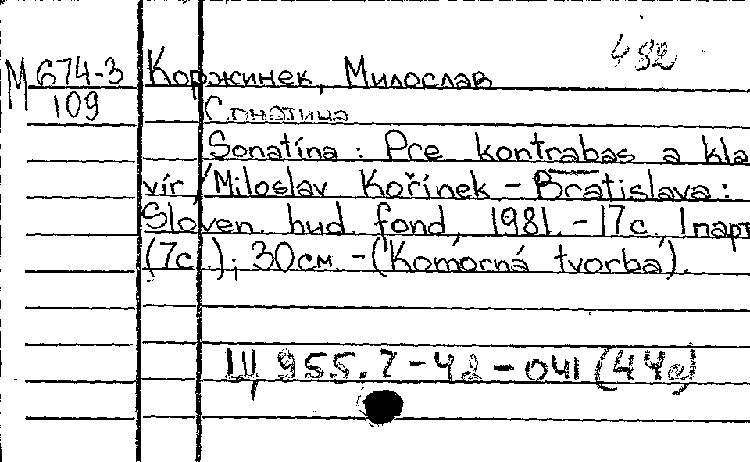 482
М 674-3 Коржинек, Милослав
109 Сонатина
Sonatína : Pre kontrabas a kla
vír / Miloslav Kořínek - Bratislava :
Sloven. hud. fond, 1981. - 17 с., 1 парт
(7с.); 30см - (Komorná tvorba).
Щ 955.7-42-041 (44е)